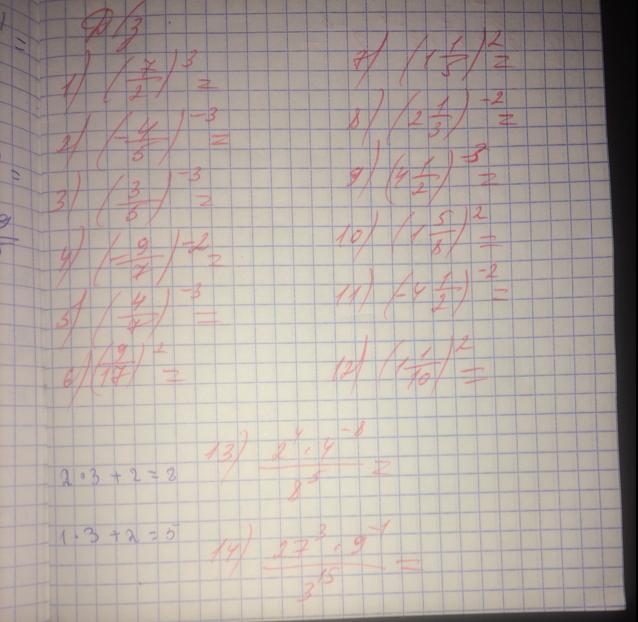 Д/з
1) (7/2)^3 =
2) (-4/5)^-3 =
3) (3/5)^-3 =
4) (-9/7)^-2 =
5) (4/7)^-3 =
6) (9/17)^2 =
7) (1 1/5)^2 =
8) (2 1/3)^-2 =
9) (4 1/2)^-3 =
10) (1 5/8)^2 =
11) (-4 1/2)^-2 =
12) (1 1/10)^2 =
13) 2^4 · 4^-8 / 8^5 =
2·3+2=8
1·3+2=5
14) 27^3 · 9^-1 / 3^15 =